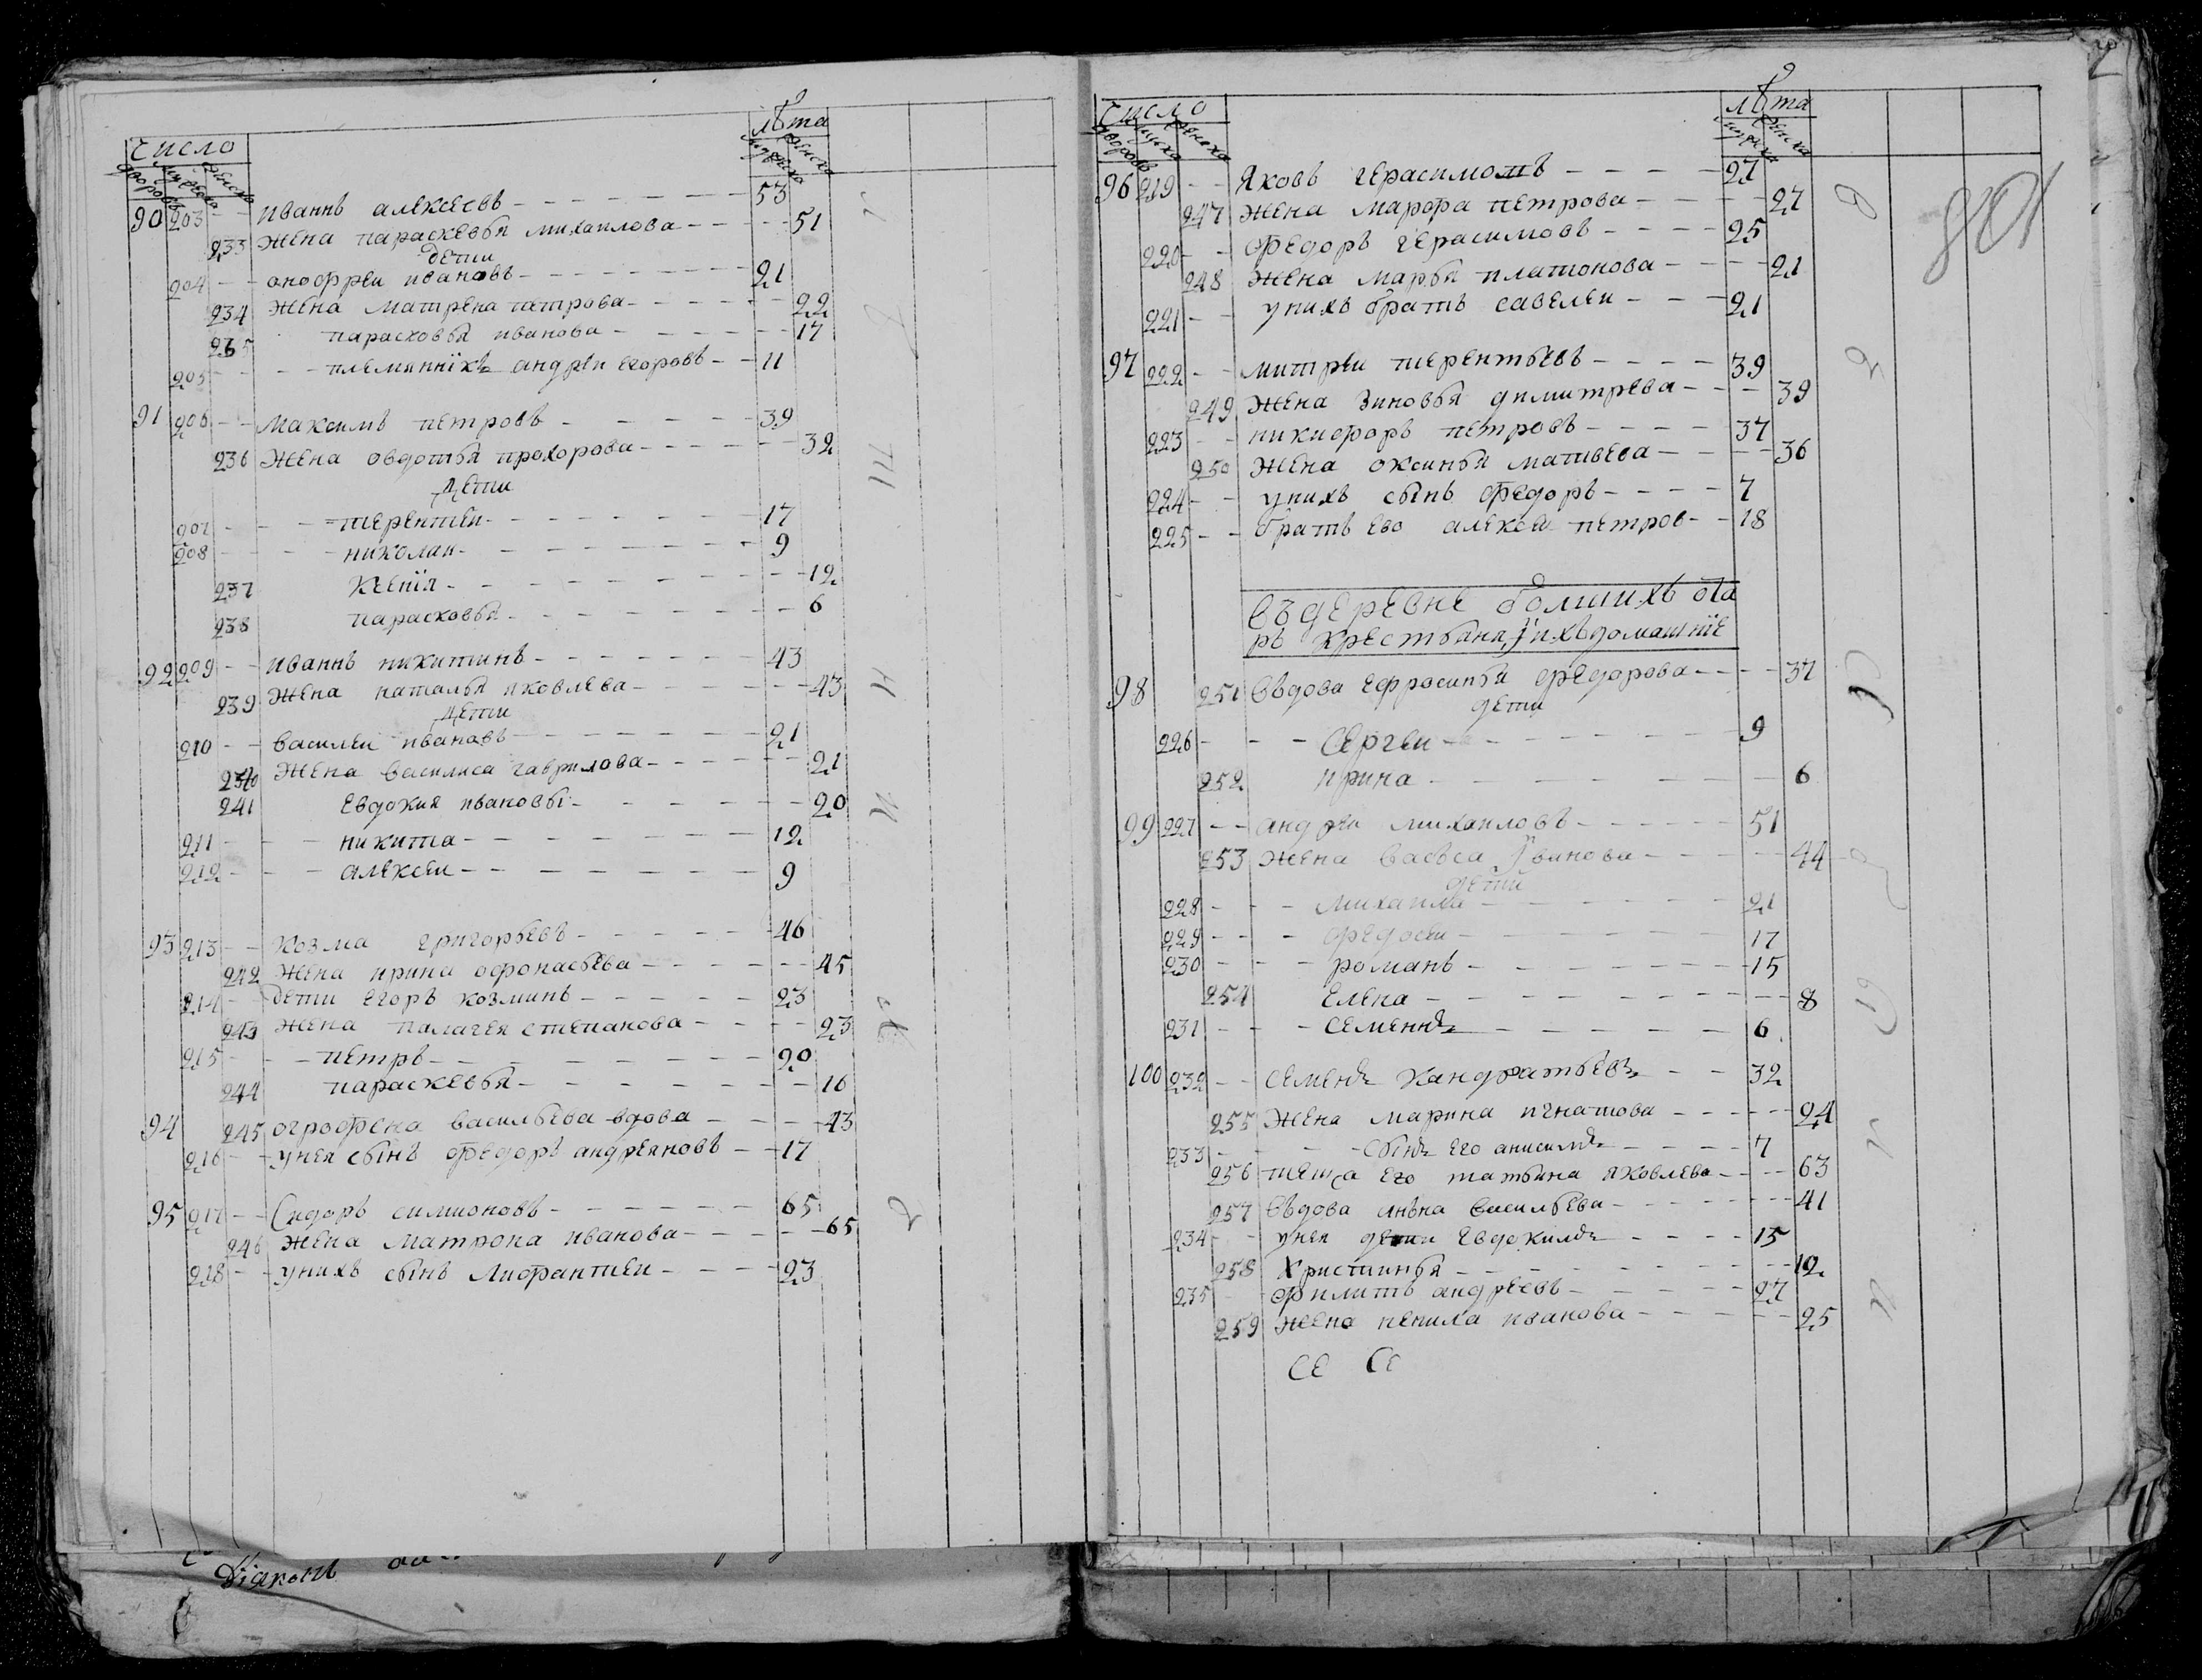 число лѣта
дворовъ мужеска женска мужеска женска
90 203 - - иваннъ алексеевъ - - - - - - 53
233 жена параскевья михаилова - - - - - 51
дети
204 - - анофреи ивановъ - - - - - - - - 21
234 жена матрена петрова - - - - - - 22
235 парасковья иванова - - - - - - 17
205 - - - - племянникъ андреи егоровъ - - 11
91 206 - - максимъ петровъ - - - - - 39
236 жена овдотья прохорова - - - - - - 32
дети
207 - - - терентеи - - - - - - - - 17
208 - - - николаи - - - - - - - - 9
237 ксенїя - - - - - - - - - 12
238 парасковья - - - - - - - - 6
92 209 - - иваннъ никитинъ - - - - - - - 43
239 жена наталья яковлева - - - - - - - 43
дети
210 - - василеи ивановъ - - - - - - - 21
240 жена василиса гаврилова - - - - - - 21
241 евдокия ивановы - - - - - - - 20
211 - - - никита - - - - - - - - 12
212 - - - алексеи - - - - - - - - 9
93 213 - - козма григорьевъ - - - - - 46
242 жена ирина офонасьева - - - - - - 45
214 - - дети егоръ козминъ - - - - - 23
243 жена палагея степанова - - - - 23
215 - - - петръ - - - - - - - - - 20
244 параскевья - - - - - - - - 16
94 245 огрофена васильева вдова - - - - 43
216 - - унея сынъ федоръ андреяновъ - - 17
95 217 - - Сидоръ симионовъ - - - - - - 65
246 жена матрона иванова - - - - - - 65
218 - - унихъ сынъ лифантиеи - - - - 23
Дїяконъ
число лѣта
дворовъ мужеска женска мужеска женска
96 219 - - яковъ герасимовъ - - - - - 27
247 жена марфа петрова - - - - - 27
220 - - федоръ герасимовъ - - - - 25
248 жена марья платонова - - - - - 21
221 - - унихъ братъ савелеи - - - 21
97 222 - - митреи терентьевъ - - - - 39
249 жена зиновья димитрева - - - 39
223 - - никифоръ петровъ - - - - 37
250 жена оксинья матвеева - - - - 36
224 - - унихъ сынъ федоръ - - - - 7
225 - - братъ ево алексеи петров - - 18
въ деревне болшихъ ота
ръ крестьяня, и ихъ домашнїе
98 251 вѣдова ефросинья федорова - - - - 37
дети
226 - - - сергеи - - - - - - - - 9
252 ирина - - - - - - - - 6
99 227 - - андреи михаиловъ - - - - - - 51
253 жена васъса иванова - - - - - 44
дети
228 - - - михаила - - - - - - - 21
229 - - - федосеи - - - - - - - 17
230 - - - романъ - - - - - - - - 15
254 елена - - - - - - - - - 8
231 - - - семеннъ - - - - - - - 6
100 232 - - семенъ кандратьевъ - - - 32
255 жена марина игнатова - - - - - 24
233 - - - - сынъ его анисимъ - - - - 7
256 теща его татьяна яковлева - - - 63
257 вѣдова анъна васильева - - - - - - 41
234 - - унея дети евдокимъ - - - - 15
258 христинья - - - - - - - - - 12
235 филипъ андреевъ - - - - - - 27
259 жена ненила иванова - - - - - - 25
се се